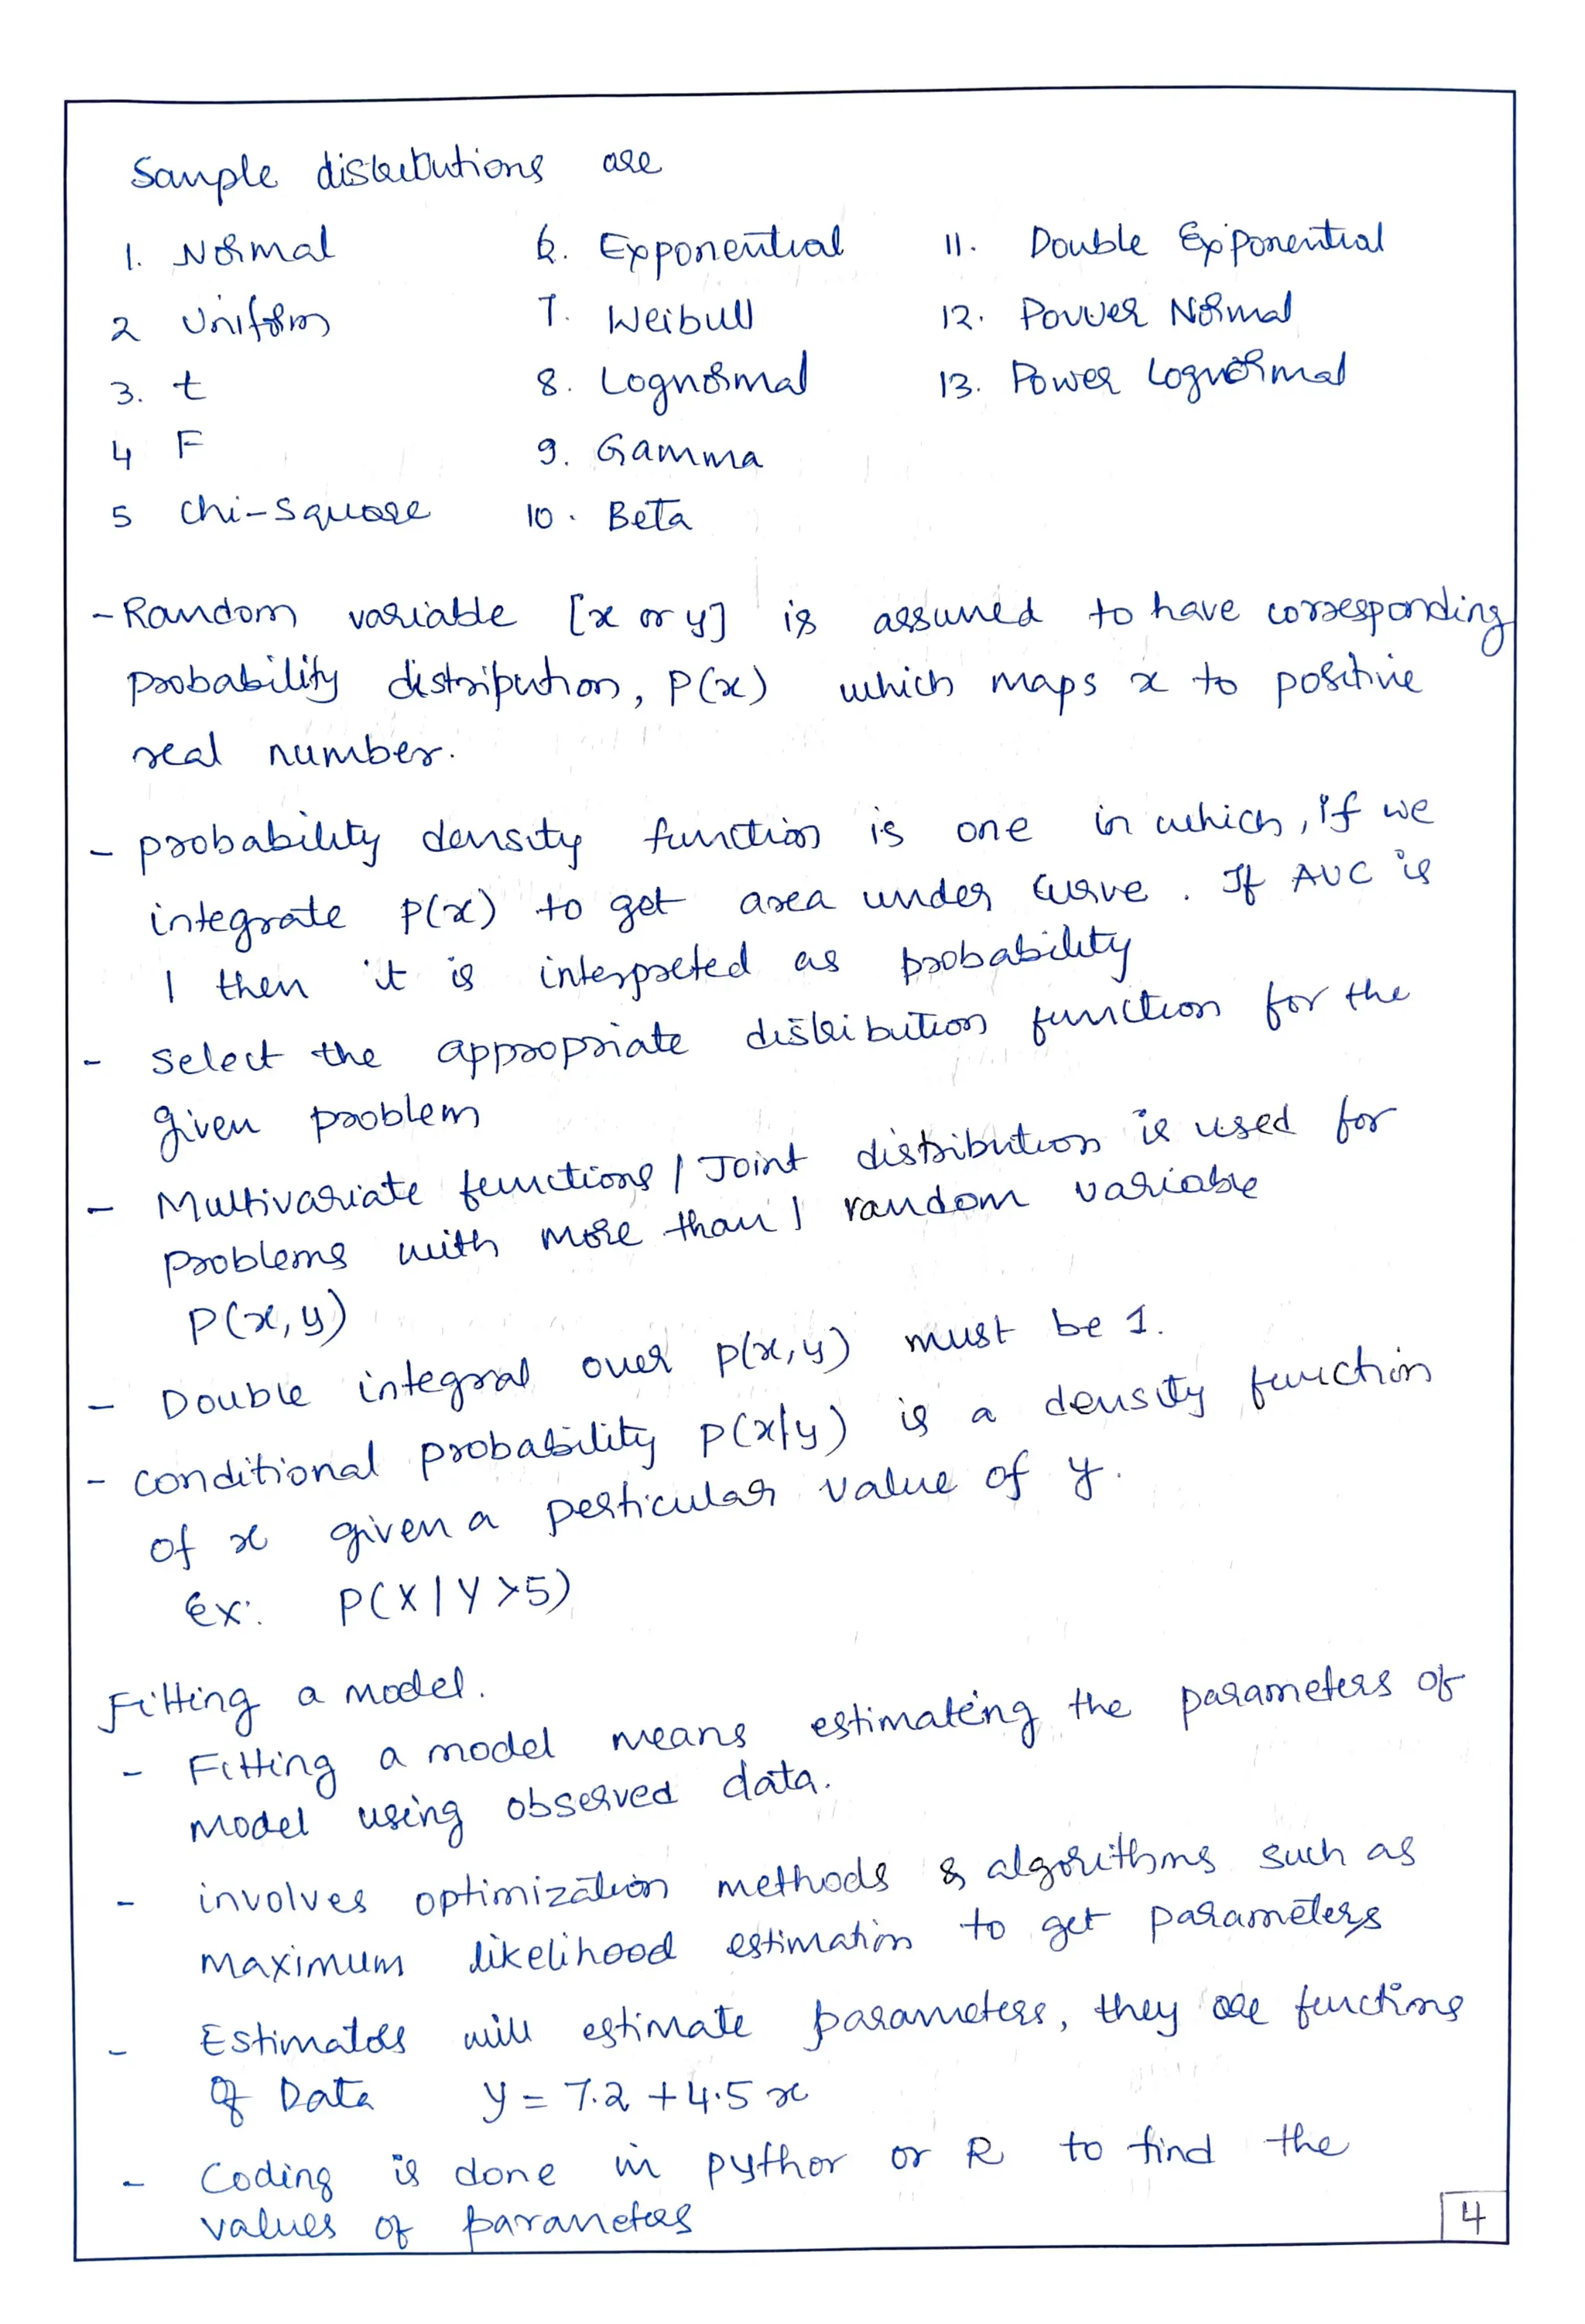 Sample distributions are
1. Normal 6. Exponential 11. Double Exponential
2 Uniform 7. Weibull 12. Power Normal
3. t 8. Lognormal 13. Power Lognormal
4 F 9. Gamma
5 Chi-Square 10. Beta
- Random variable [x or y] is assumed to have corresponding
probability distribution, P(x) which maps x to positive
real number.
- probability density function is one in which, if we
integrate P(x) to get area under curve. If AUC is
1 then it is interpreted as probability
- Select the appropriate distribution function for the
given problem
- Multivariate functions / Joint distribution is used for
problems with more than 1 random variable
P(x,y)
- Double integral over p(x,y) must be 1.
- conditional probability P(x/y) is a density function
of x given a perticular value of y.
Ex: P(X|Y>5)
Fitting a model.
- Fitting a model means estimating the parameters of
model using observed data.
- involves optimization methods & algorithms such as
maximum likelihood estimation to get parameters
- Estimators will estimate parameters, they are functions
of Data y = 7.2 + 4.5 x
- Coding is done in python or R to find the
values of parameters
4